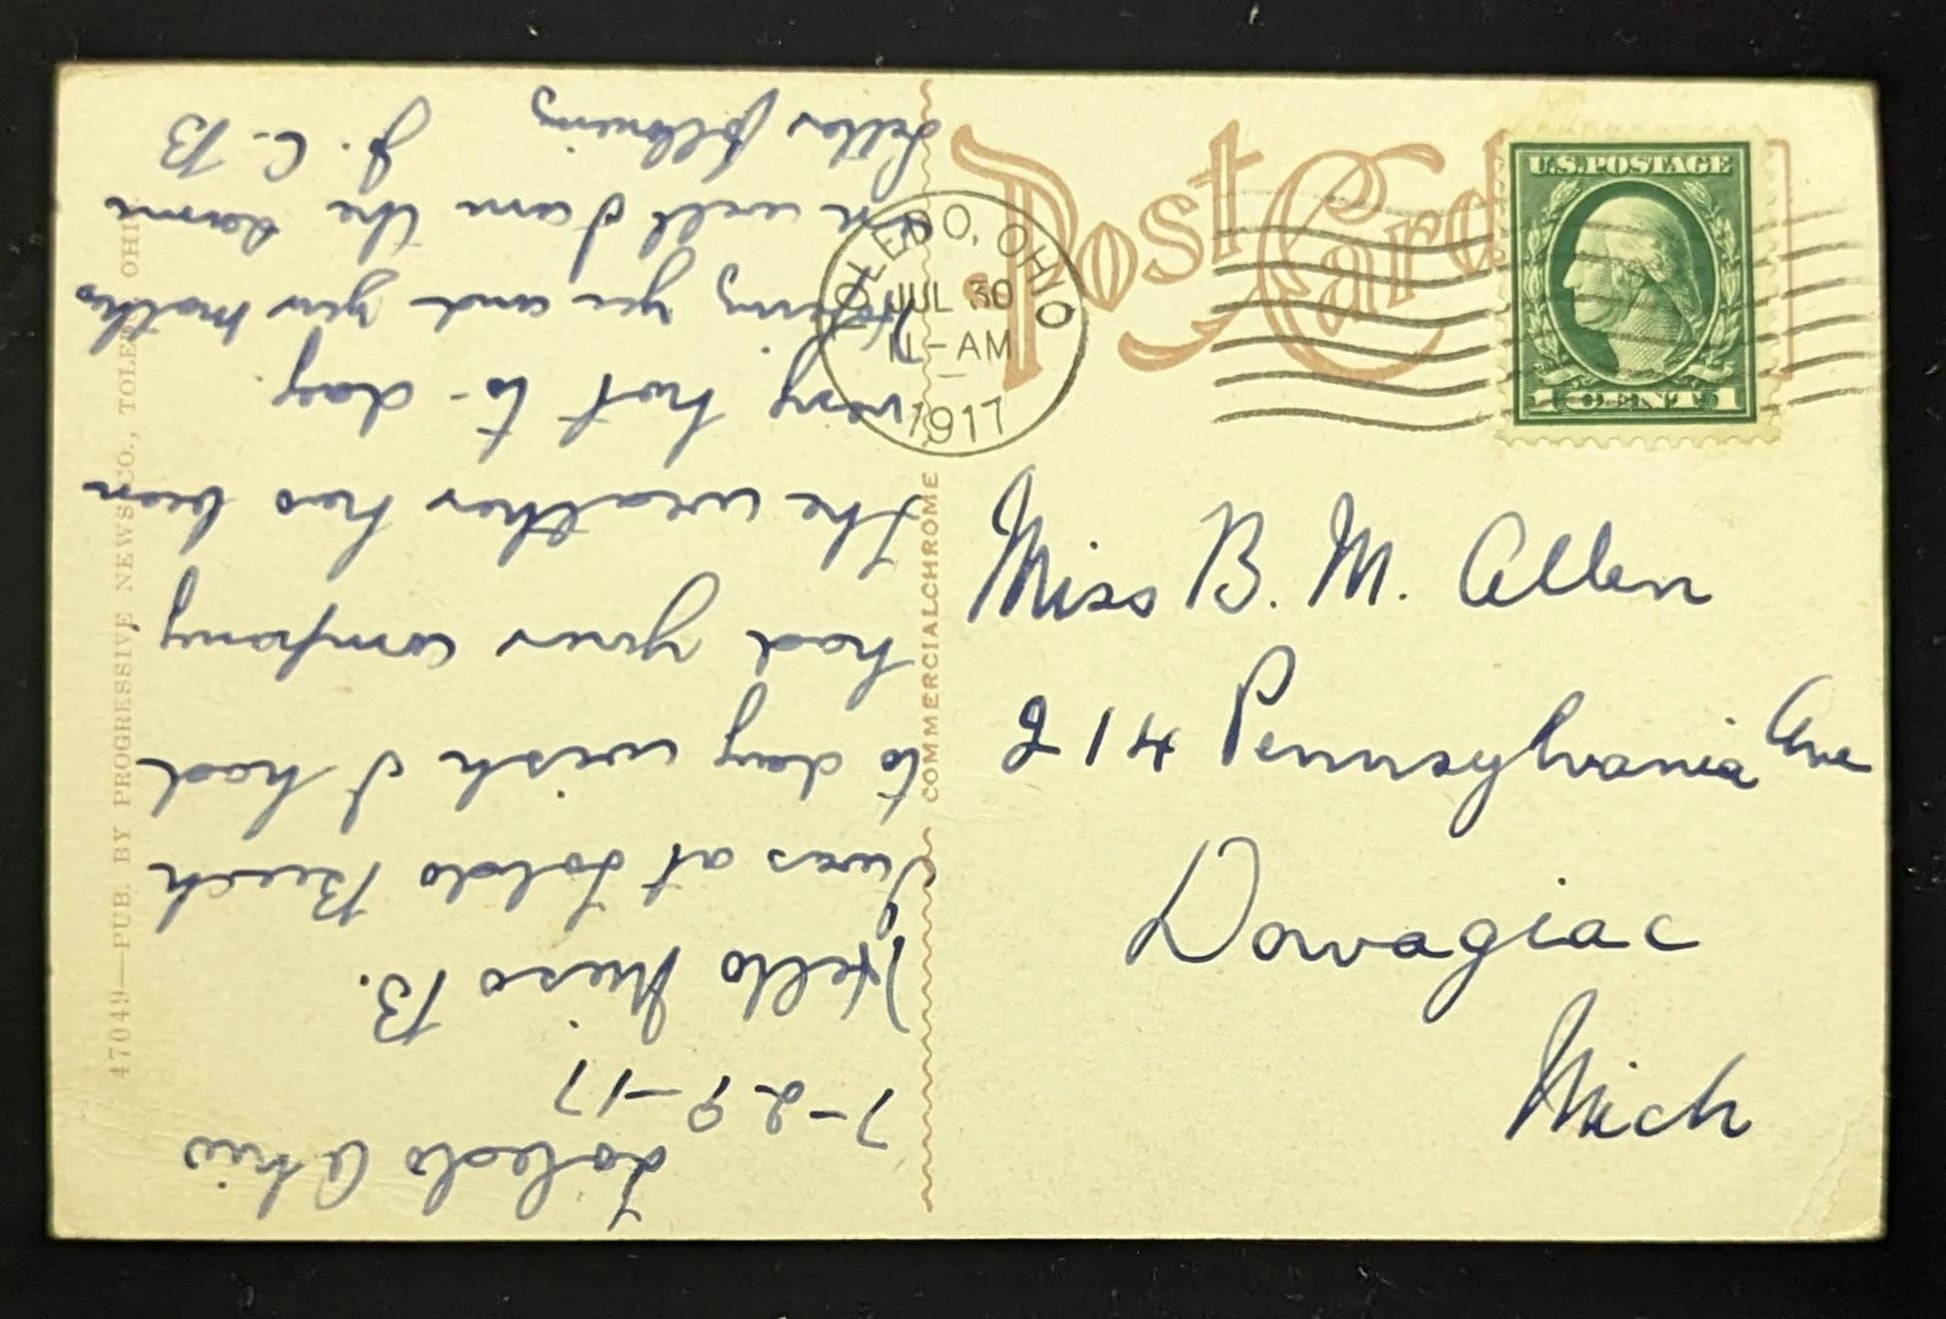 Toledo Ohio
7-29-17
Hello Miss B.
I was at Toledo Beech
to day wish I had
had your company
The weather has been
very hot to-day.
Hoping you and your mother
are well I am the same
Letter following J. C. B
47049—PUB. BY PROGRESSIVE NEWS CO., TOLEDO, OHIO
COMMERCIALCHROME
Post Card
TOLEDO, OHIO
JUL 30
11-AM
1917
U.S. POSTAGE
1 CENT 1
Miss B. M. Allen
214 Pennsylvania Ave
Dowagiac
Mich